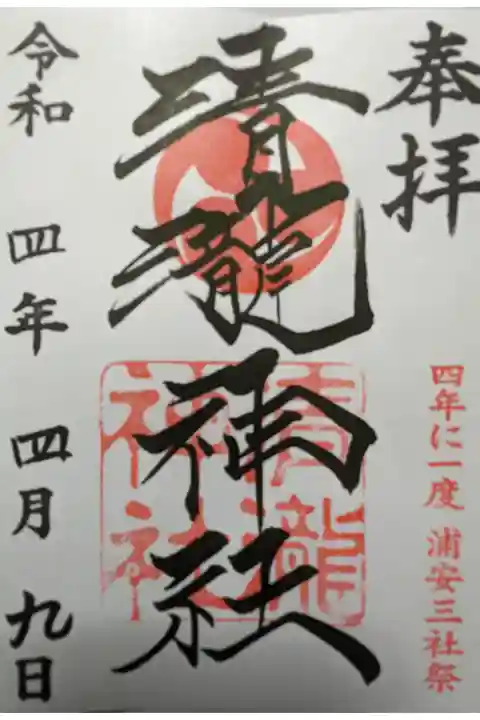 奉拝
四年に一度 浦安三社祭
清瀧神社
清瀧
神社
令和 四年 四月 九日